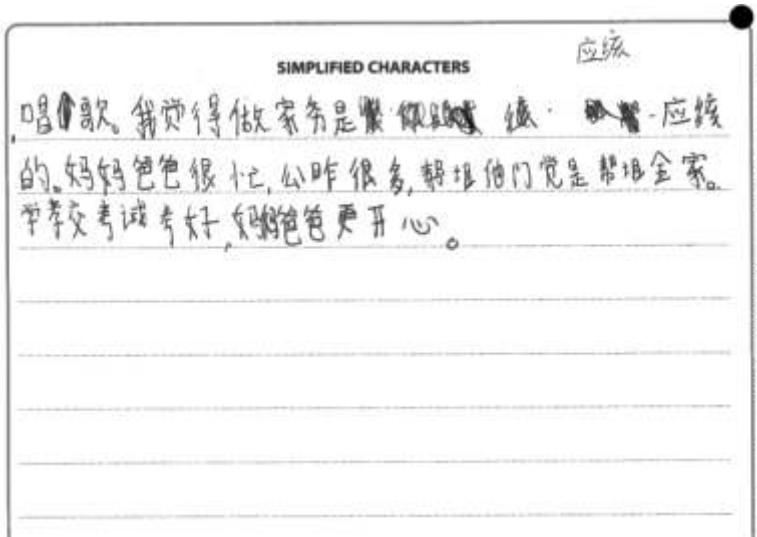 应该
SIMPLIFIED CHARACTERS
唱歌。我觉得做家务是 应该
的。妈妈爸爸很忙,公昨很多,帮坦他门党是帮坦全家。
学孝交考诚考好,妈妈爸爸更开心。